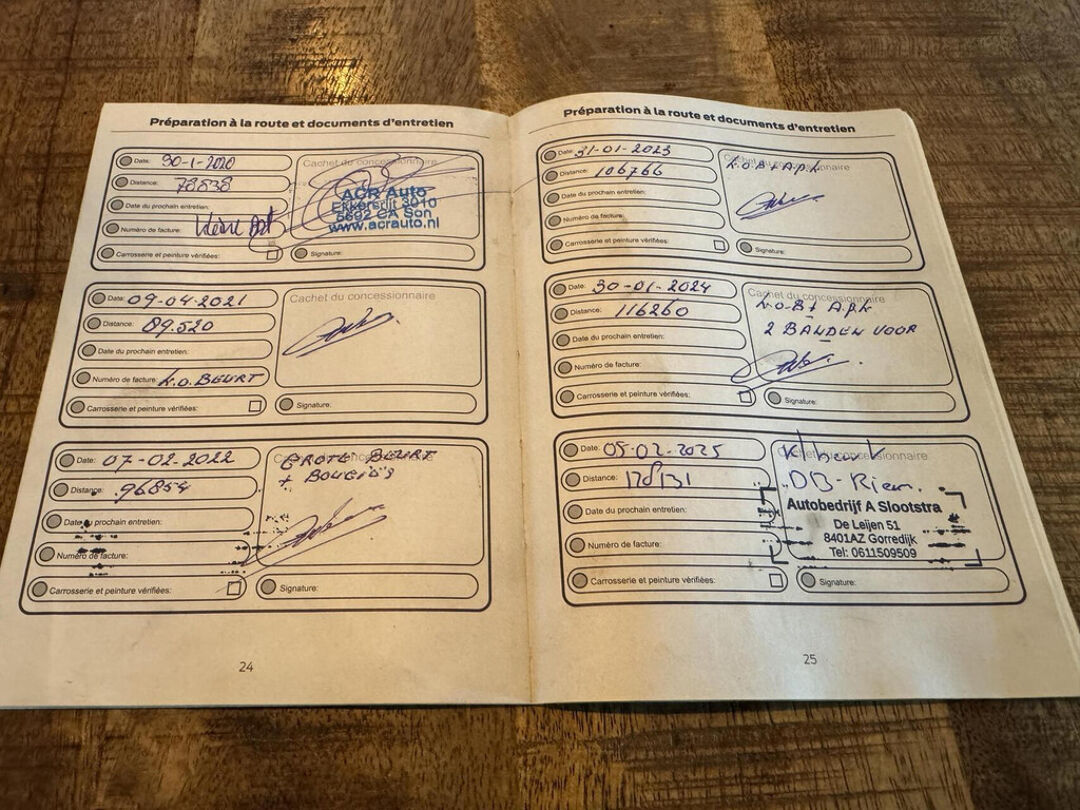 Préparation à la route et documents d'entretien
Date: 30-1-2020
Distance: 78838
Date du prochain entretien:
Numéro de facture:
Carrosserie et peinture vérifiées:
Cachet du concessionnaire
ACR Auto
Ekkersrijt 3010
5692 CA Son
www.acrauto.nl
Signature:
Date: 09-04-2021
Distance: 89.520
Date du prochain entretien:
Numéro de facture: K.O. BEURT
Carrosserie et peinture vérifiées:
Cachet du concessionnaire
Signature:
Date: 07-02-2022
Distance: 96854
Date du prochain entretien:
Numéro de facture:
Carrosserie et peinture vérifiées:
Cachet du concessionnaire
GROTE BEURT
+ BOUGIE'S
Signature:
24
Préparation à la route et documents d'entretien
Date: 31-01-2023
Distance: 106766
Date du prochain entretien:
Numéro de facture:
Carrosserie et peinture vérifiées:
Cachet du concessionnaire
K.O.B + A.P.K
Signature:
Date: 30-01-2024
Distance: 116260
Date du prochain entretien:
Numéro de facture:
Carrosserie et peinture vérifiées:
Cachet du concessionnaire
K.O.B + A.P.K
2 BANDEN VOOR
Signature:
Date: 05-02-2025
Distance: 128131
Date du prochain entretien:
Numéro de facture:
Carrosserie et peinture vérifiées:
Cachet du concessionnaire
K beurt
DB-Riem.
Autobedrijf A Slootstra
De Leijen 51
8401AZ Gorredijk
Tel: 0611509509
Signature:
25